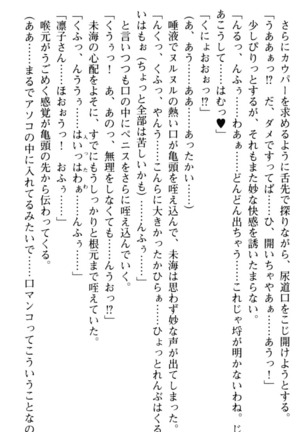 さらにカウパーを求めるように舌先で探りながら、尿道口をこじ開けようとする。
「うああぁっ!? だ、ダメですってば……ひ、開いちゃやあぁ……あうっ!」
少しぴりっとするが、それもまた妙な快感を誘いたまらない。
「んるっ、んふぅ……わあぁ……どんどん出ちゃう……これじゃ埒が明かないわね。じ
あこうして……はむっ♥」
「くにょおおぉっ!?」
(あ、あう……あ、あったかい……)
唾液でヌルヌルの熱い口が亀頭を咥え込んで、未海は思わず妙な声が出てしまった。
「んくっ、くふっ、やんう……こんらに大きかったかひらぁ……ひょっとれんぶはくる
いはもぉ(ちょっと全部は苦しいかも)……んふぅ……」
と言いつつも口の中にペニスをさらに咥え込んでいく。
「くうぅっ! あ、あの、無理をしなくても……んうおっ!?」
未海の心配をよそに、すでにもうしっかりと根元まで咥えていた。
「くふっ、んううぅ……はいっはわぁ……んふぅ……」
「凛子さん……ほおぉうっ! おふぅ……」
喉元がうごめく感覚が亀頭の先から伝わってくる。
(ああ……まるでアソコの中に入れてるみたいで……口マンコってこういうことなの